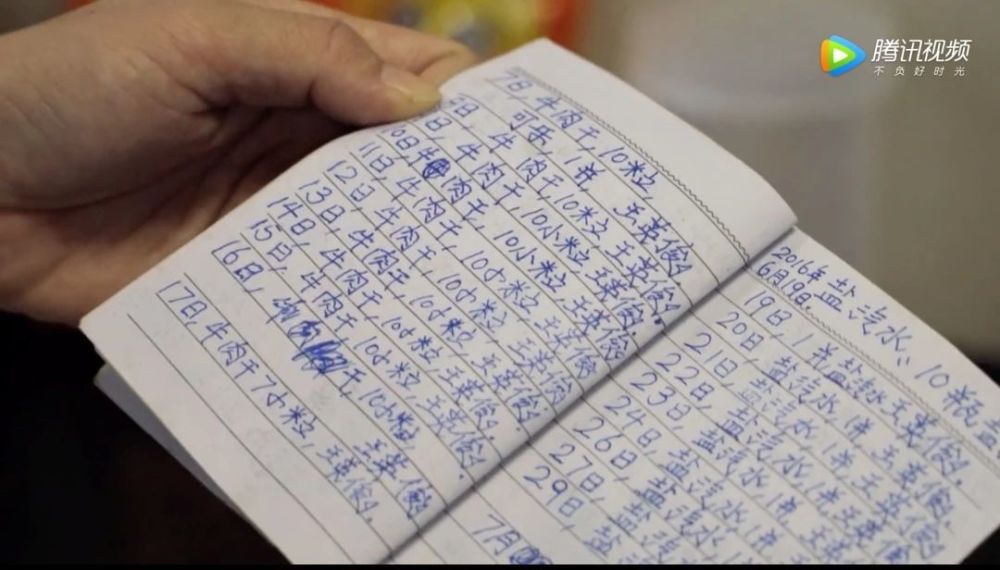 腾讯视频
不负好时光
7日,牛肉干,10粒
可乐,1并,王英俊
8日,牛肉干,10粒,王英俊
9日,牛肉干,10小粒,王英俊
10日,牛肉干,10小粒,王英俊
11日,牛肉干,10小粒,王英俊
12日,牛肉干,10小粒,王英俊
13日,牛肉干,10小粒,王英俊
14日,牛肉干,10小粒,王英俊
15日,牛肉干,10小粒,王英俊
16日,干,10小粒,王英俊
17日,牛肉干7小粒,王英俊
2016年6月19日 盐汽水,10瓶
19日,1并盐汽水王英俊
20日,盐汽水,1并王英俊
21日,盐汽水,1并王英俊
22日,盐汽水,1并王英俊
23日,盐汽水,1并
24日,盐汽水,1
26日,盐汽水
27日,盐
29日,盐
7月